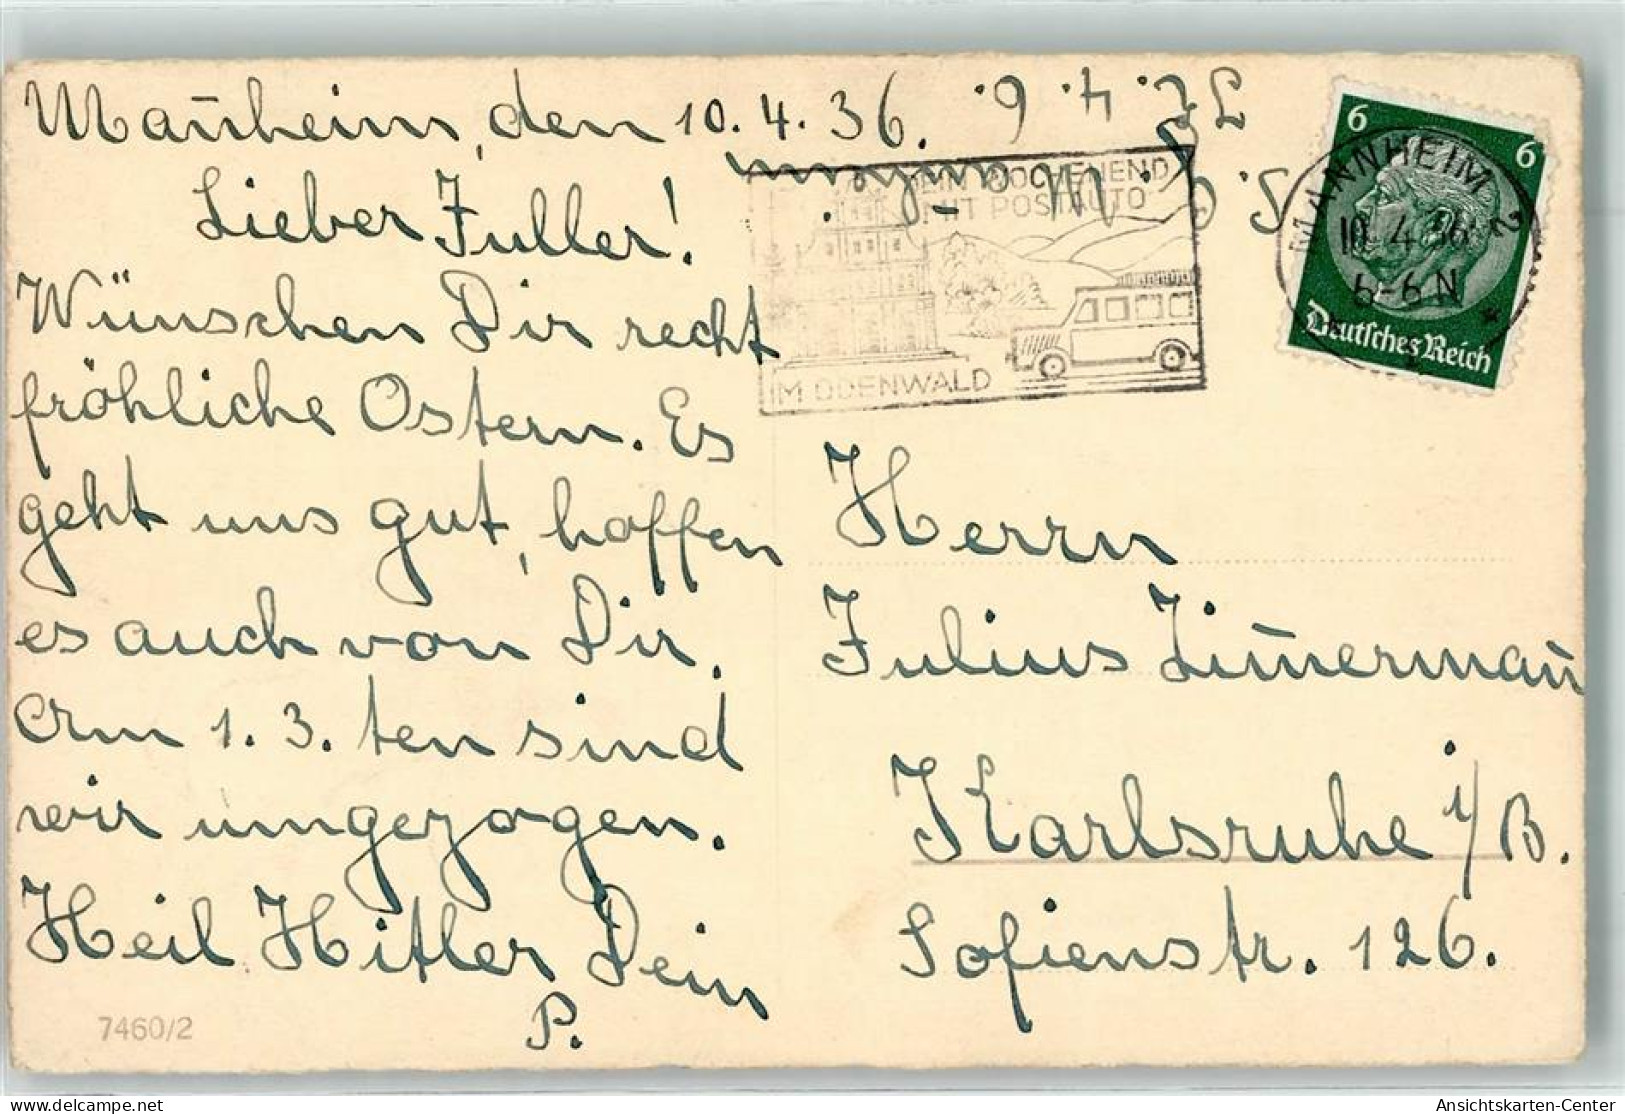 Mañheim, den 10.4.36.
Lieber Juller!
Wünschen Dir recht
fröhliche Ostern. Es
geht uns gut, hoffen
es auch von Dir.
Am 1.3.ten sind
wir umgezogen.
Heil Hitler Dein
P.
7460/2
DEIN WOCHENEND
MIT POSTAUTO
IM ODENWALD
MANNHEIM 2
10.4.36
6-6N
*
6
6
Deutsches Reich
Herrn
Julius Zim̄ermañ
Karlsruhe i/B.
Sofienstr. 126.
Ansichtskarten-Center